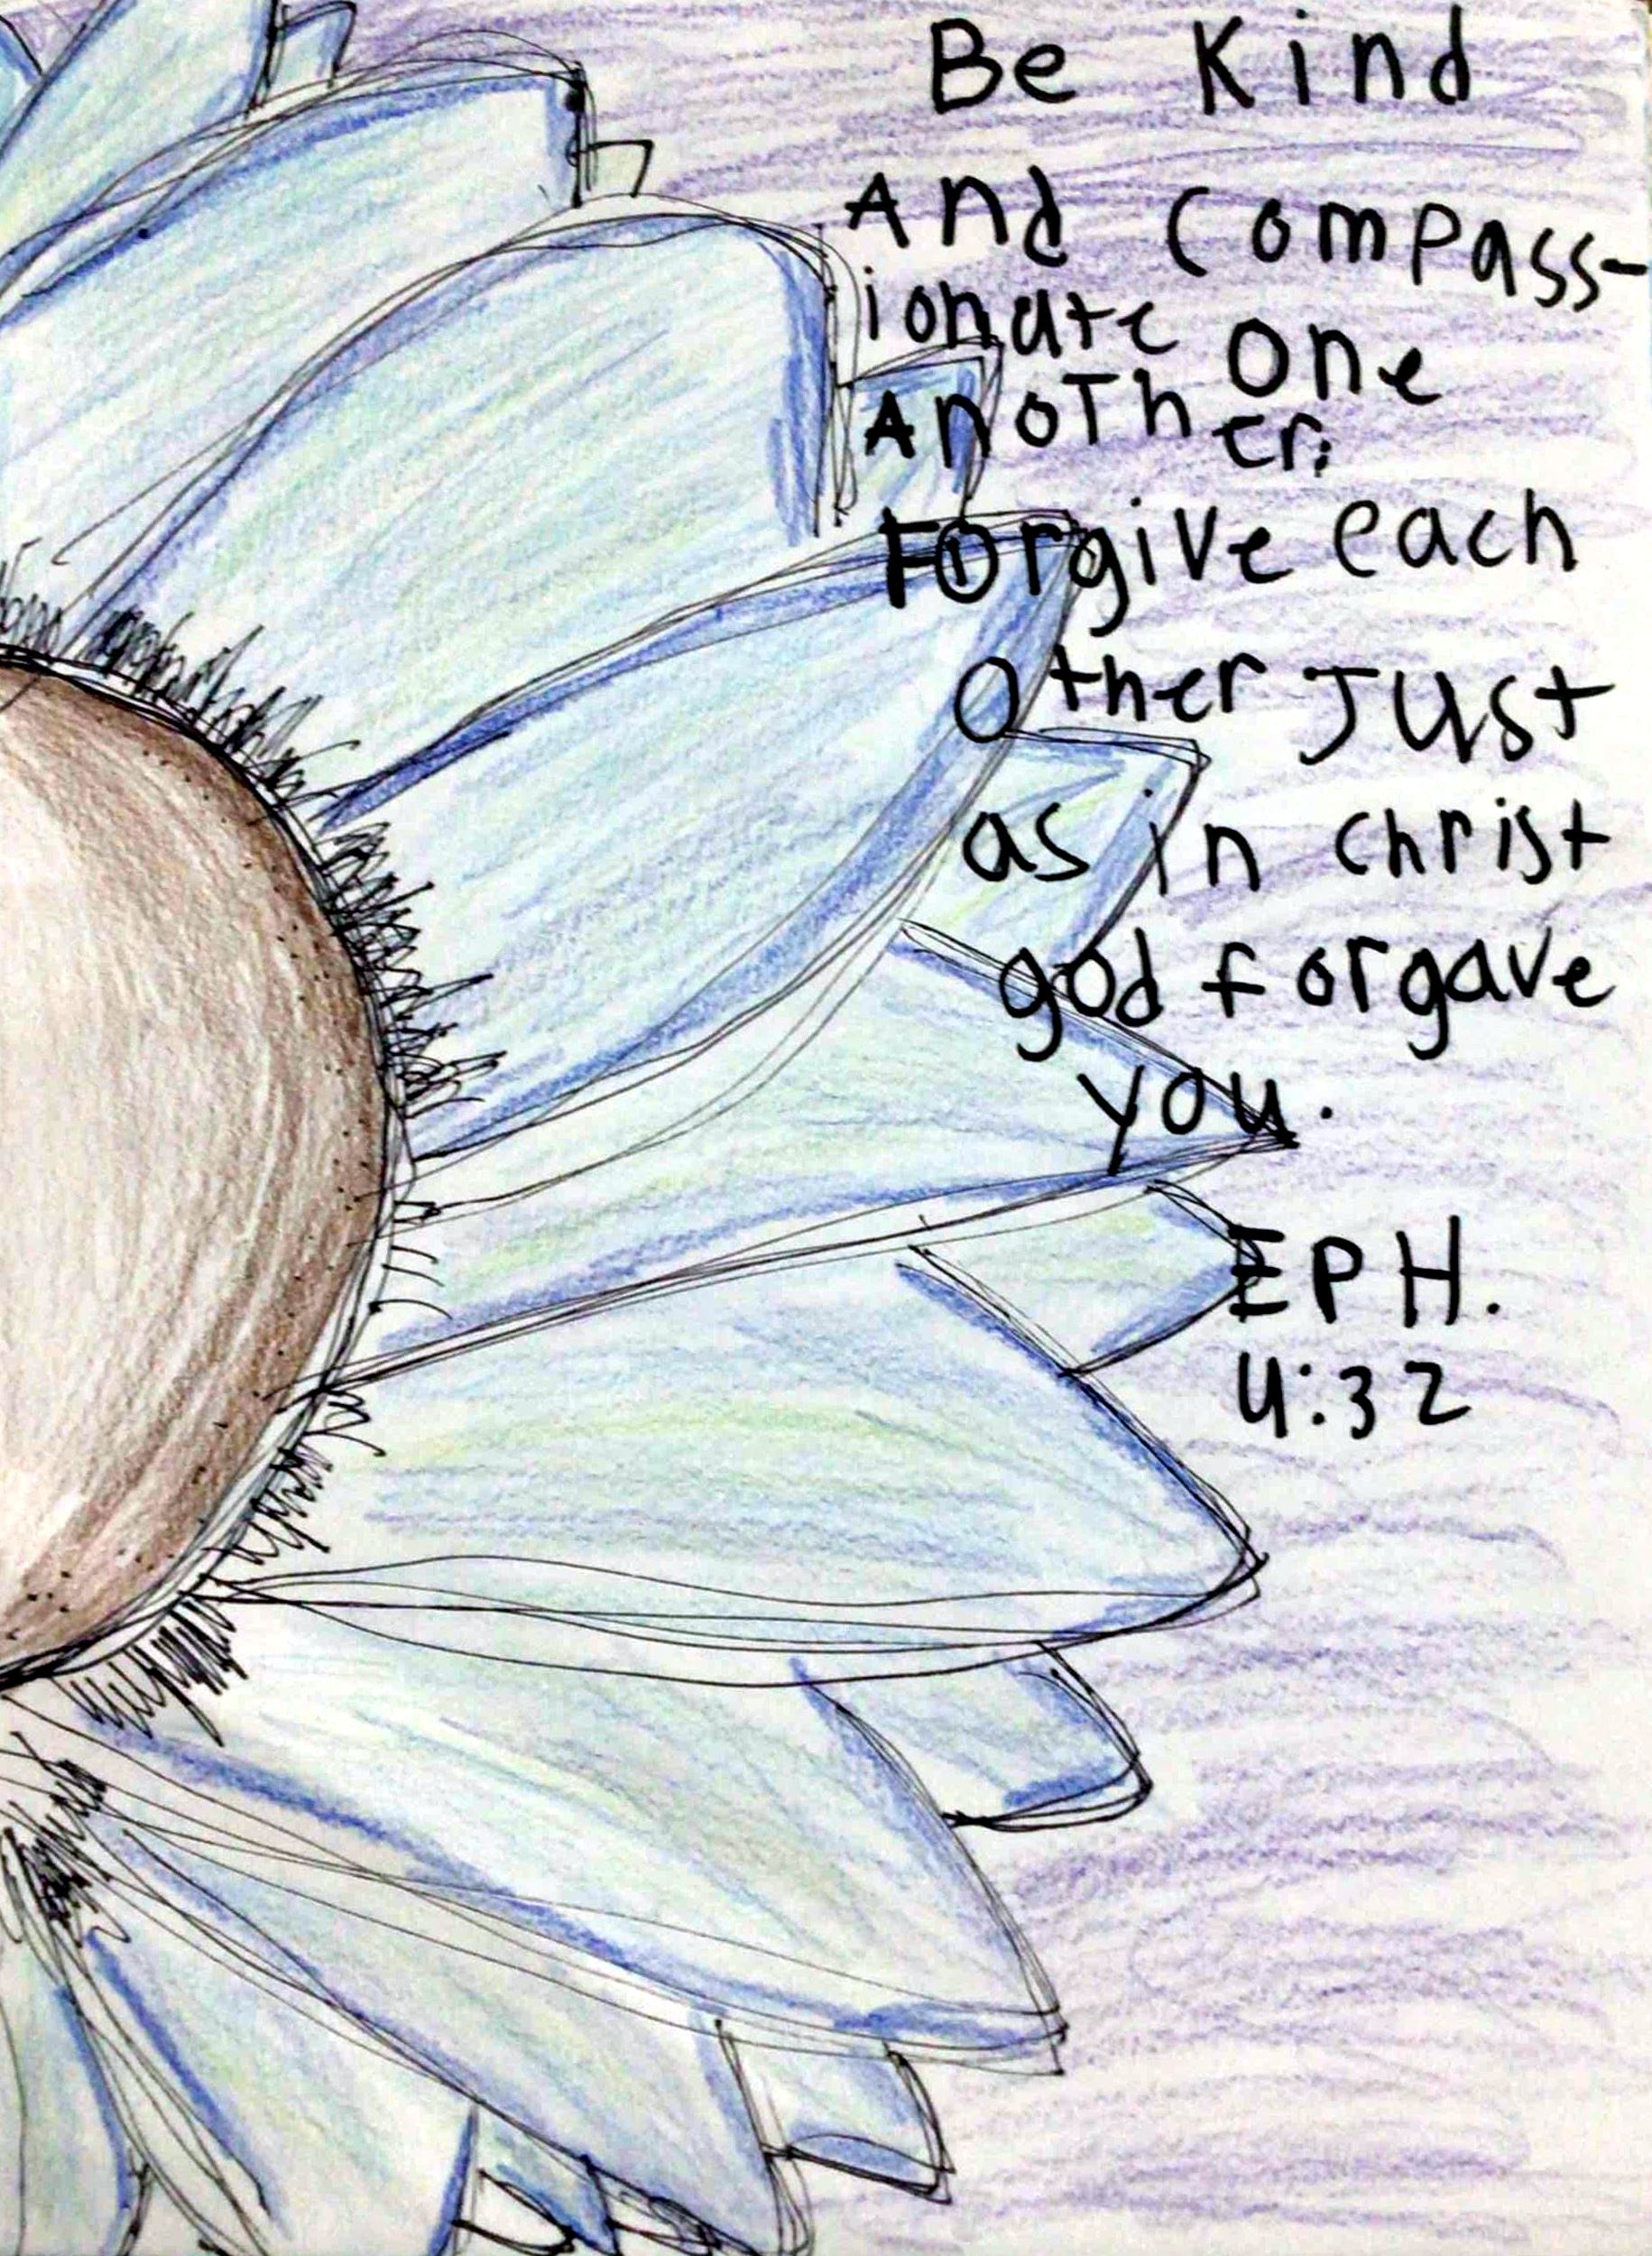 Be Kind
And Compass-
ionate one
Another;
Forgive each
other Just
as in christ
god forgave
you.
EPH.
4:32